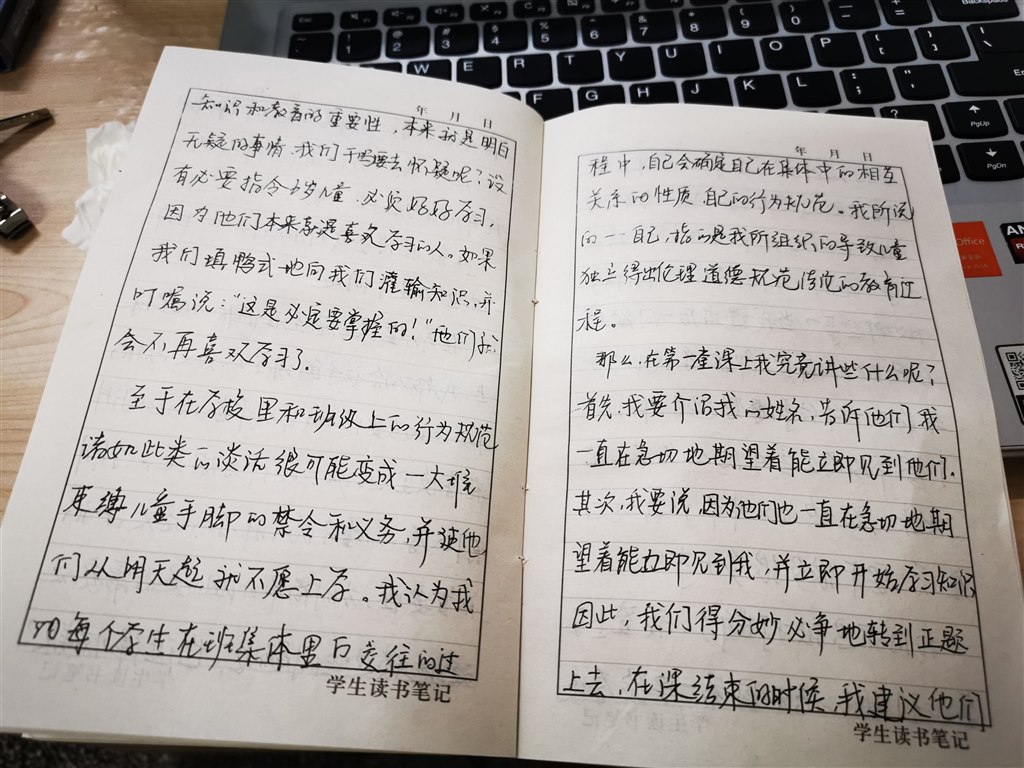 年 月 日
知识和教育的重要性，本来就是明白
无疑的事情，我们干吗要去怀疑呢？没
有必要指令6岁儿童，必须好好学习，
因为他们本来就是喜欢学习的人。如果
我们填鸭式地向我们灌输知识，并
叮嘱说：“这是必定要掌握的！”他们就
会不再喜欢学习了.
至于在学校里和班级上的行为规范
诸如此类的谈话很可能变成一大堆
束缚儿童手脚的禁令和义务，并使他
们从明天起就不愿上学。我认为我
和每个学生在班集体里的交往的过
学生读书笔记
年 月 日
程中，自己会确定自己在集体中的相互
关系的性质，自己的行为规范。我所说
的——自己，指的是我所组织的导致儿童
独立得出伦理道德规范结论的教育过
程。
那么，在第一堂课上我究竟讲些什么呢？
首先，我要介绍我的姓名，告诉他们我
一直在急切地期望着能立即见到他们.
其次，我要说，因为他们也一直在急切地期
望着能立即见到我，并立即开始学习知识
因此，我们得分妙必争地转到正题
上去，在课结束的时候，我建议他们
学生读书笔记
Esc
@ 2
# 3
$ 4
% 5
6
& 7
* 8
( 9
) 0
Backspace
W
E
R
T
Y
U
I
O
P
F
G
H
J
K
L
Enter
PgUp
PgDn
Office